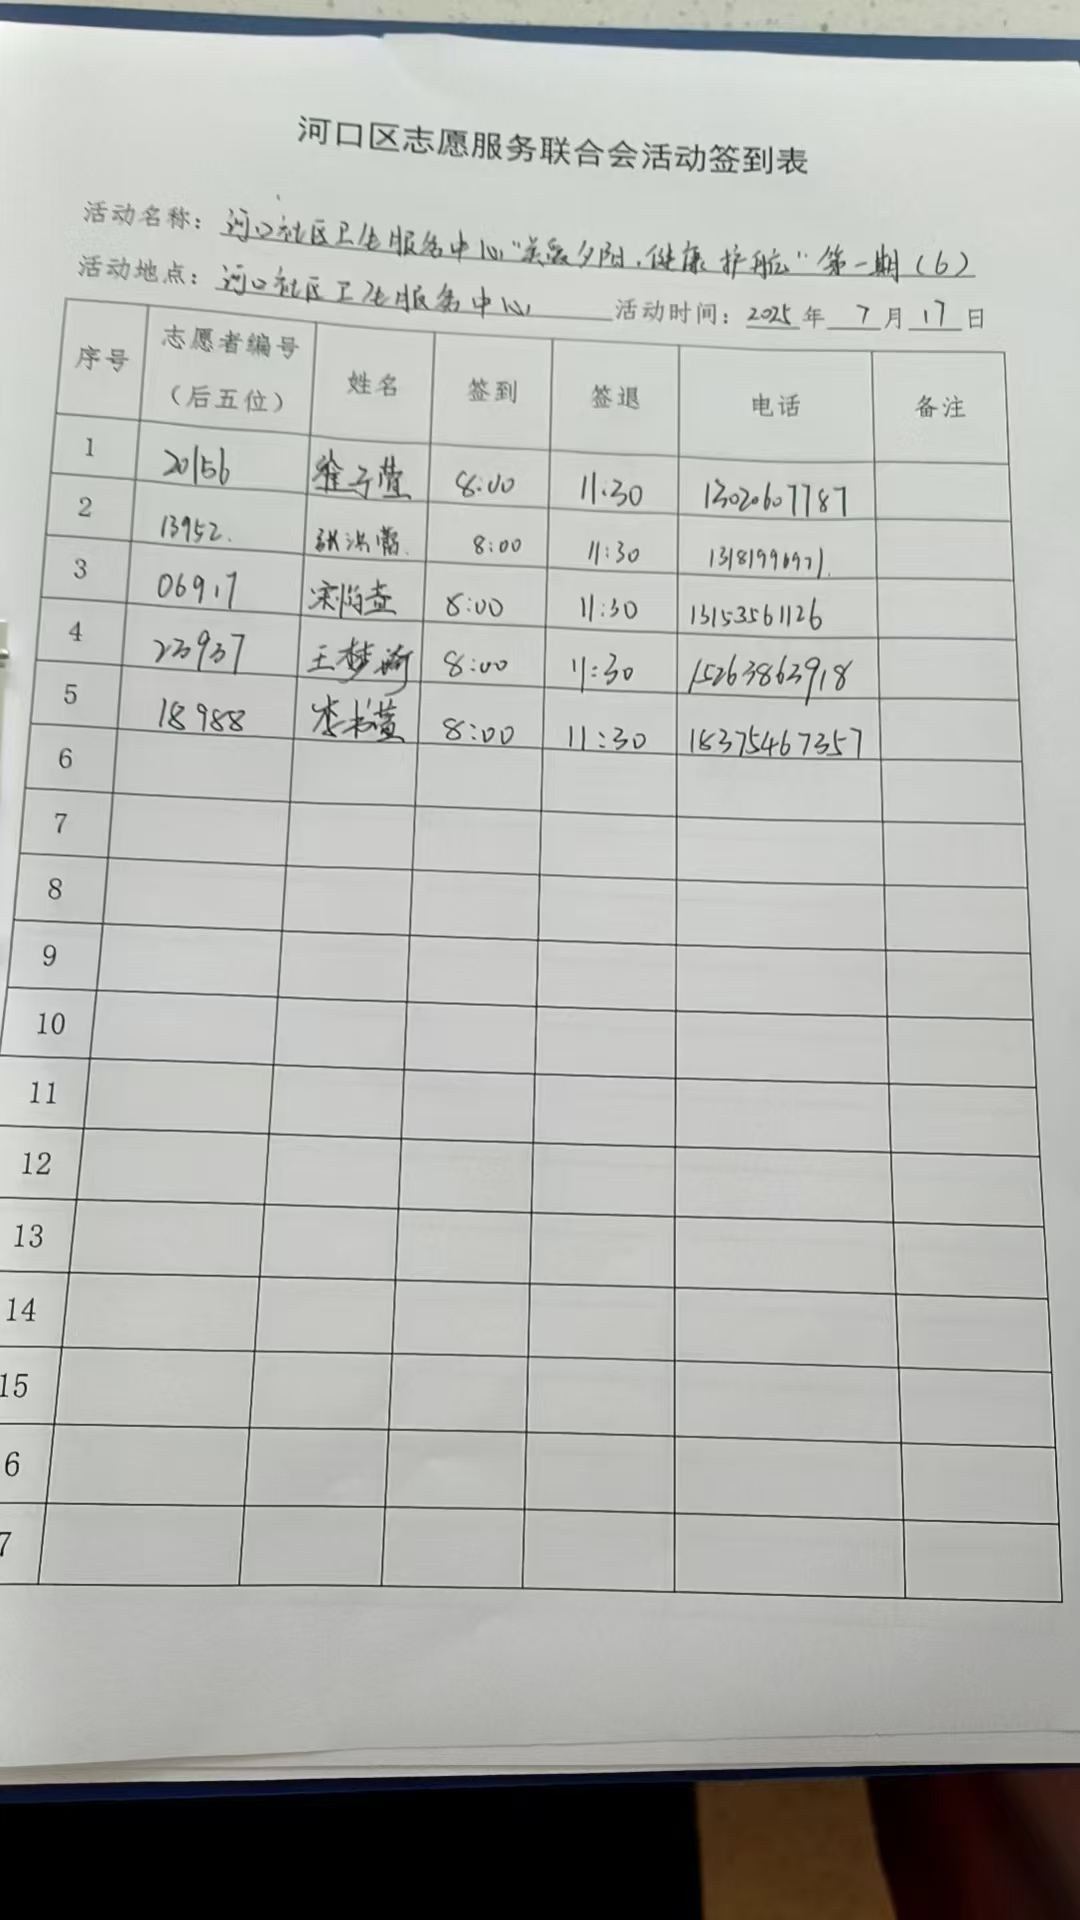 河口区志愿服务联合会活动签到表
活动名称：河口社区卫生服务中心"关爱夕阳，健康护航"第一期（6）
活动地点：河口社区卫生服务中心 活动时间：2025年7月17日
序号 志愿者编号（后五位） 姓名 签到 签退 电话 备注
1 20156 徐子萱 8:00 11:30 13020607787
2 13952. 张洪 8:00 11:30
3 06917 8:00 11:30 13153561126
4 23937 王梦 8:00 11:30 15263863918
5 18988 李书萱 8:00 11:30 18375467357
6
7
8
9
10
11
12
13
14
15
6
7